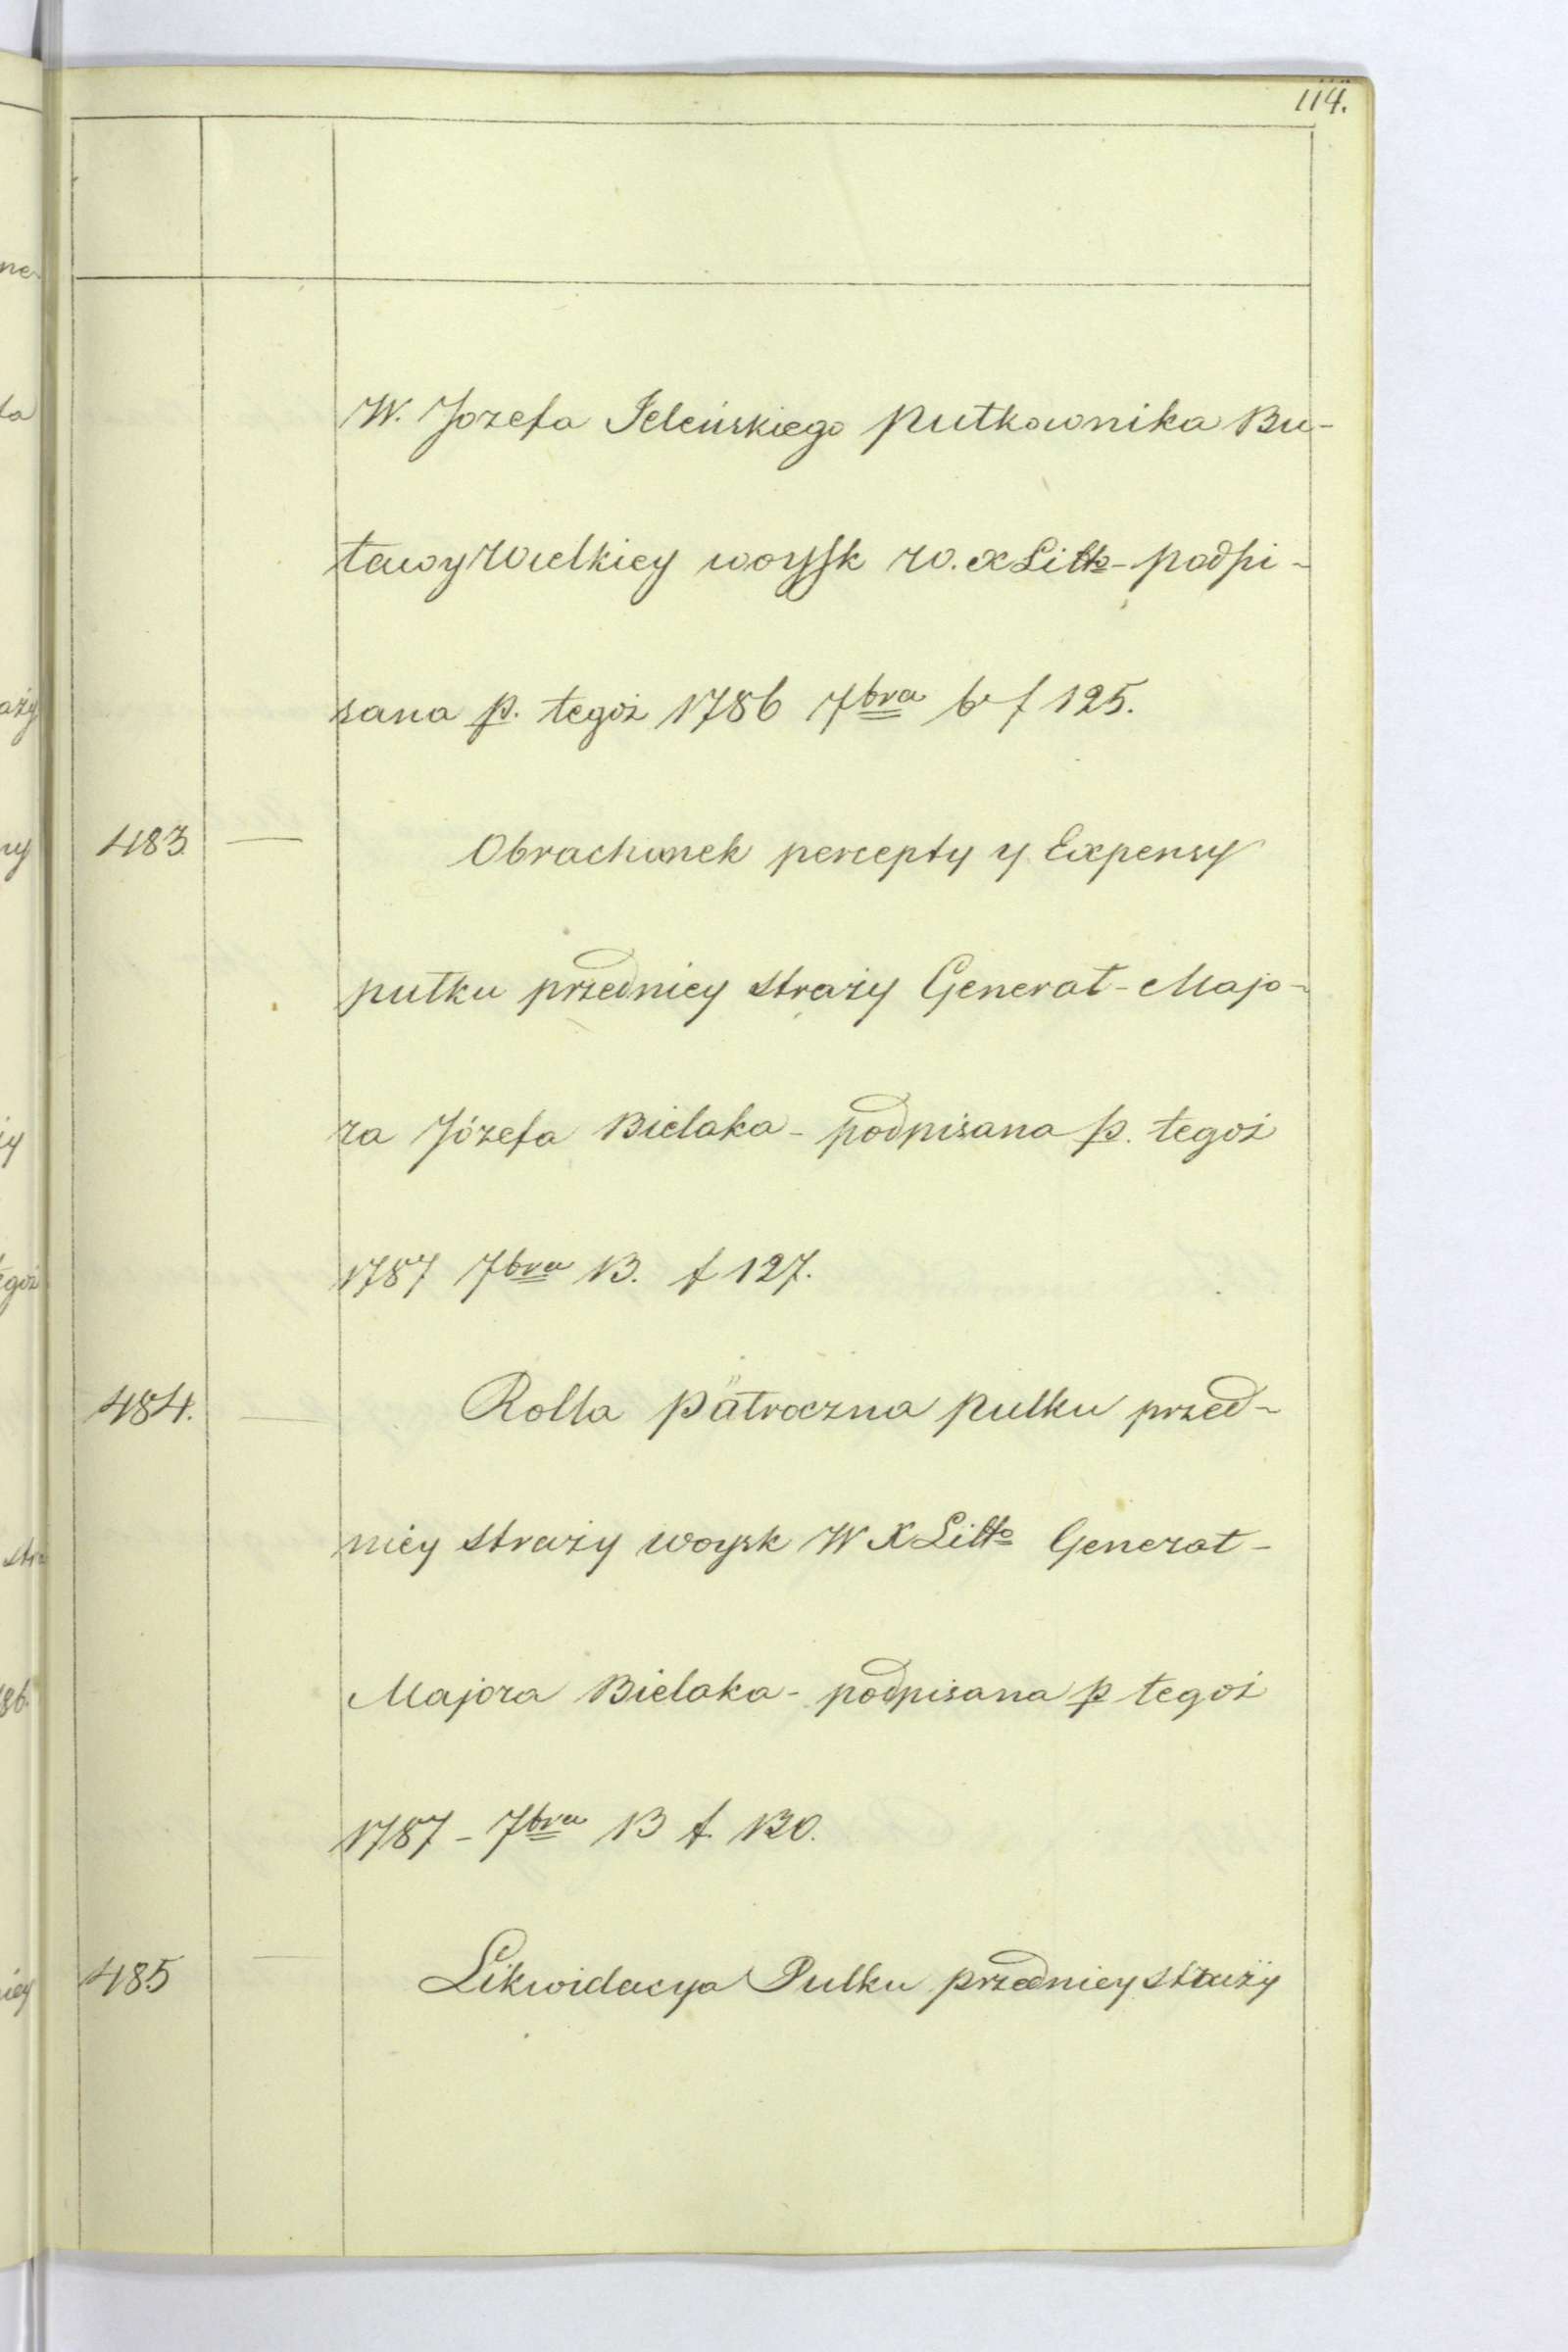 114.
W. Jozefa Jeleńskiego pułkownika Bu-
ławy Wielkiey woyssk w. x Litto - podpi-
sana p. tegoż 1786 7bra 6 f 125.
483. — Obrachunek percepty y Expensy
pułku przedniey straży Generał-Majo-
ra Józefa Bielaka - podpisana p. tegoż
1787 7bra 13. f 127.
484. — Rolla pätroczna pulku przed-
niey straży woysk W X Litto Generał-
Majora Bielaka - podpisana p tegoż
1787 - 7bra 13 f. 130.
485 — Likwidacya Pulku przedniey straży